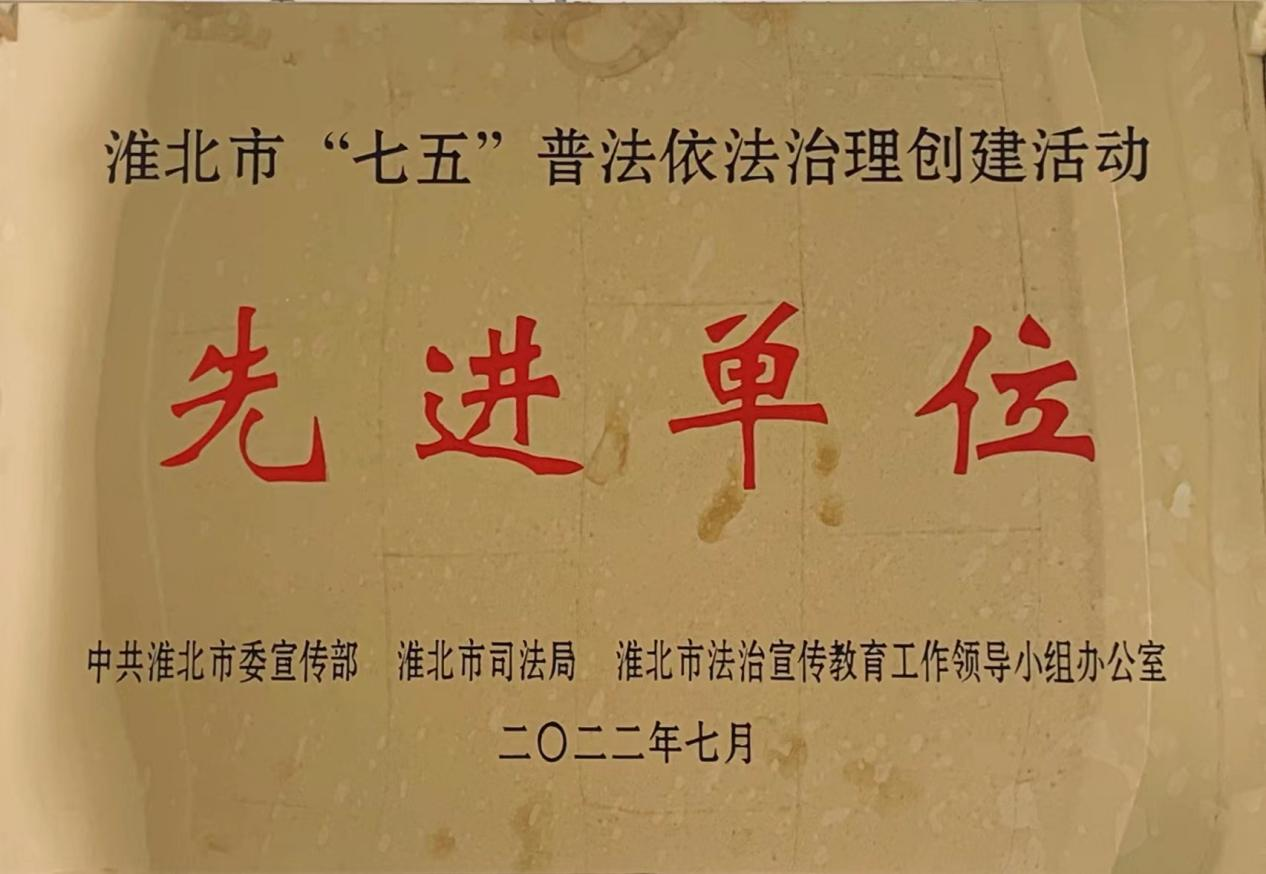 淮北市“七五”普法依法治理创建活动
先进单位
中共淮北市委宣传部 淮北市司法局 淮北市法治宣传教育工作领导小组办公室
二〇二二年七月